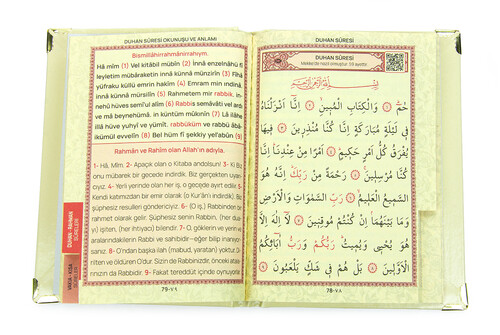 DUHAN SÛRESİ OKUNUŞU VE ANLAMI
Bismillâhirrahmânirrahıym.
Hâ mîm (1) Vel kitâbil mübîn (2) İnnâ enzelnâhü fî
leyletim mübâraketin innâ künnâ münzirîn (3) Fîhâ
yüfraku küllü emrin hakîm (4) Emram min ındinâ,
innâ künnâ mürsilîn (5) Rahmetem mir rabbik, in-
nehû hüves semî'ul alîm (6) Rabbis semâvâti vel ardı
ve mâ beynehümâ, in küntüm mûkınîn (7) Lâ ilâhe
illâ hüve yuhyî ve yümît, rabbüküm ve rabbü âbâ-
ikümül evvelîn (8) Bel hüm fî şekkiy yel'abûn (9)
Rahmân ve Rahîm olan Allah'ın adıyla.
1- Hâ. Mîm. 2- Apaçık olan o Kitaba andolsun! 3- Ki Biz
onu mübarek bir gecede indirdik. Biz gerçekten uyarı-
cıyız. 4- Yani yerinde olan her iş, o gecede ayırt edilir. 5-
Kendi katımızdan bir emir olarak (o Kur'ân'ı indirdik). Biz
şüphesiz resulleri göndericiyiz. 6- (O iş), Rabbinden bir
rahmet olarak gelir. Şüphesiz senin Rabbin, (her du-
ayı) işiten, (her ihtiyacı) bilendir. 7- O, göklerin ve yerin ve
aralarındakilerin Rabbi ve sahibidir—eğer bilip inanıyor-
sanız. 8- O'ndan başka ilah (mabud, yaratan) yoktur. Di-
rilten ve öldüren O'dur. Sizin de Rabbinizdir, önceki ata-
larınızın da Rabbidir. 9- Fakat tereddüt içinde oynuyorlar.
79-٧٩
DUHAN SÛRESİ
DUHAN SÛRESİ
Mekke'de nazil olmuştur. 59 ayettir.
بِسْمِ اللّٰهِ الرَّحْمٰنِ الرَّحِيمِ
حٰمٓ ﴿١﴾ وَالْكِتَابِ الْمُبِينِ ﴿٢﴾ اِنَّٓا اَنْزَلْنَاهُ
فِى لَيْلَةٍ مُبَارَكَةٍ اِنَّا كُنَّا مُنْذِرِينَ ﴿٣﴾ فِيهَا
يُفْرَقُ كُلُّ اَمْرٍ حَكِيمٍ ﴿٤﴾ اَمْرًا مِنْ عِنْدِنَا اِنَّا
كُنَّا مُرْسِلِينَ ﴿٥﴾ رَحْمَةً مِنْ رَبِّكَ اِنَّهُ هُوَ
السَّمِيعُ الْعَلِيمُ ﴿٦﴾ رَبِّ السَّمٰوَاتِ وَالْاَرْضِ
وَمَا بَيْنَهُمَا اِنْ كُنْتُمْ مُوقِنِينَ ﴿٧﴾ لَٓا اِلٰهَ اِلَّا
هُوَ يُحْيِى وَيُمِيتُ رَبُّكُمْ وَرَبُّ اٰبَٓائِكُمُ
الْاَوَّلِينَ ﴿٨﴾ بَلْ هُمْ فِى شَكٍّ يَلْعَبُونَ ﴿٩﴾
78-٧٨